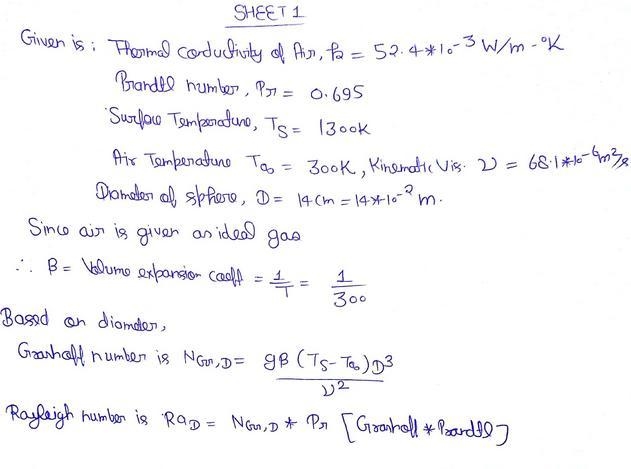 SHEET 1
Given is : Thermal conductivity of Air, k = 52.4*10⁻³ W/m-°K
Prandtl number, Pr = 0.695
Surface Temperature, Ts = 1300K
Air Temperature T∞ = 300K, Kinematic Vis. ν = 68.1*10⁻⁶m²/s
Diameter of sphere, D = 14cm = 14*10⁻² m.
Since air is given as ideal gas
∴ B = Volume expansion coeff = 1/T = 1/300
Based on diameter,
Grashoff number is NGr,D = gβ (Ts-T∞)D³/ν²
Rayleigh number is RaD = NGr,D * Pr [Grashoff * Prandtl]